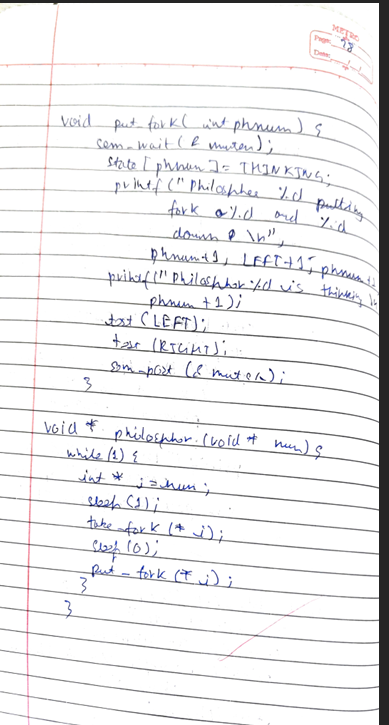 METRO
Page: 98
Date:
void put_fork( int phnum) {
sem_wait (& mutex);
state [phnum] = THINKING;
printf ("Philosopher %d putting
fork %d and %d
down \n",
phnum+1, LEFT+1, phnum+1
printf("Philosophor %d is thinking \n
phnum +1);
test (LEFT);
test (RIGHT);
sem_post (& mutex);
}
void * philosphor (void * num) {
while (1) {
int * i = num;
sleep (1);
take_fork (* i);
sleep (0);
put_fork (* i);
}
}